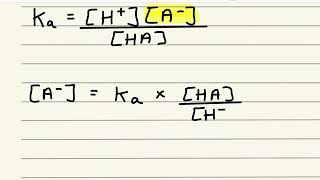 Ka = [H⁺][A⁻] / [HA]
[A⁻] = Ka × [HA] / [H⁻